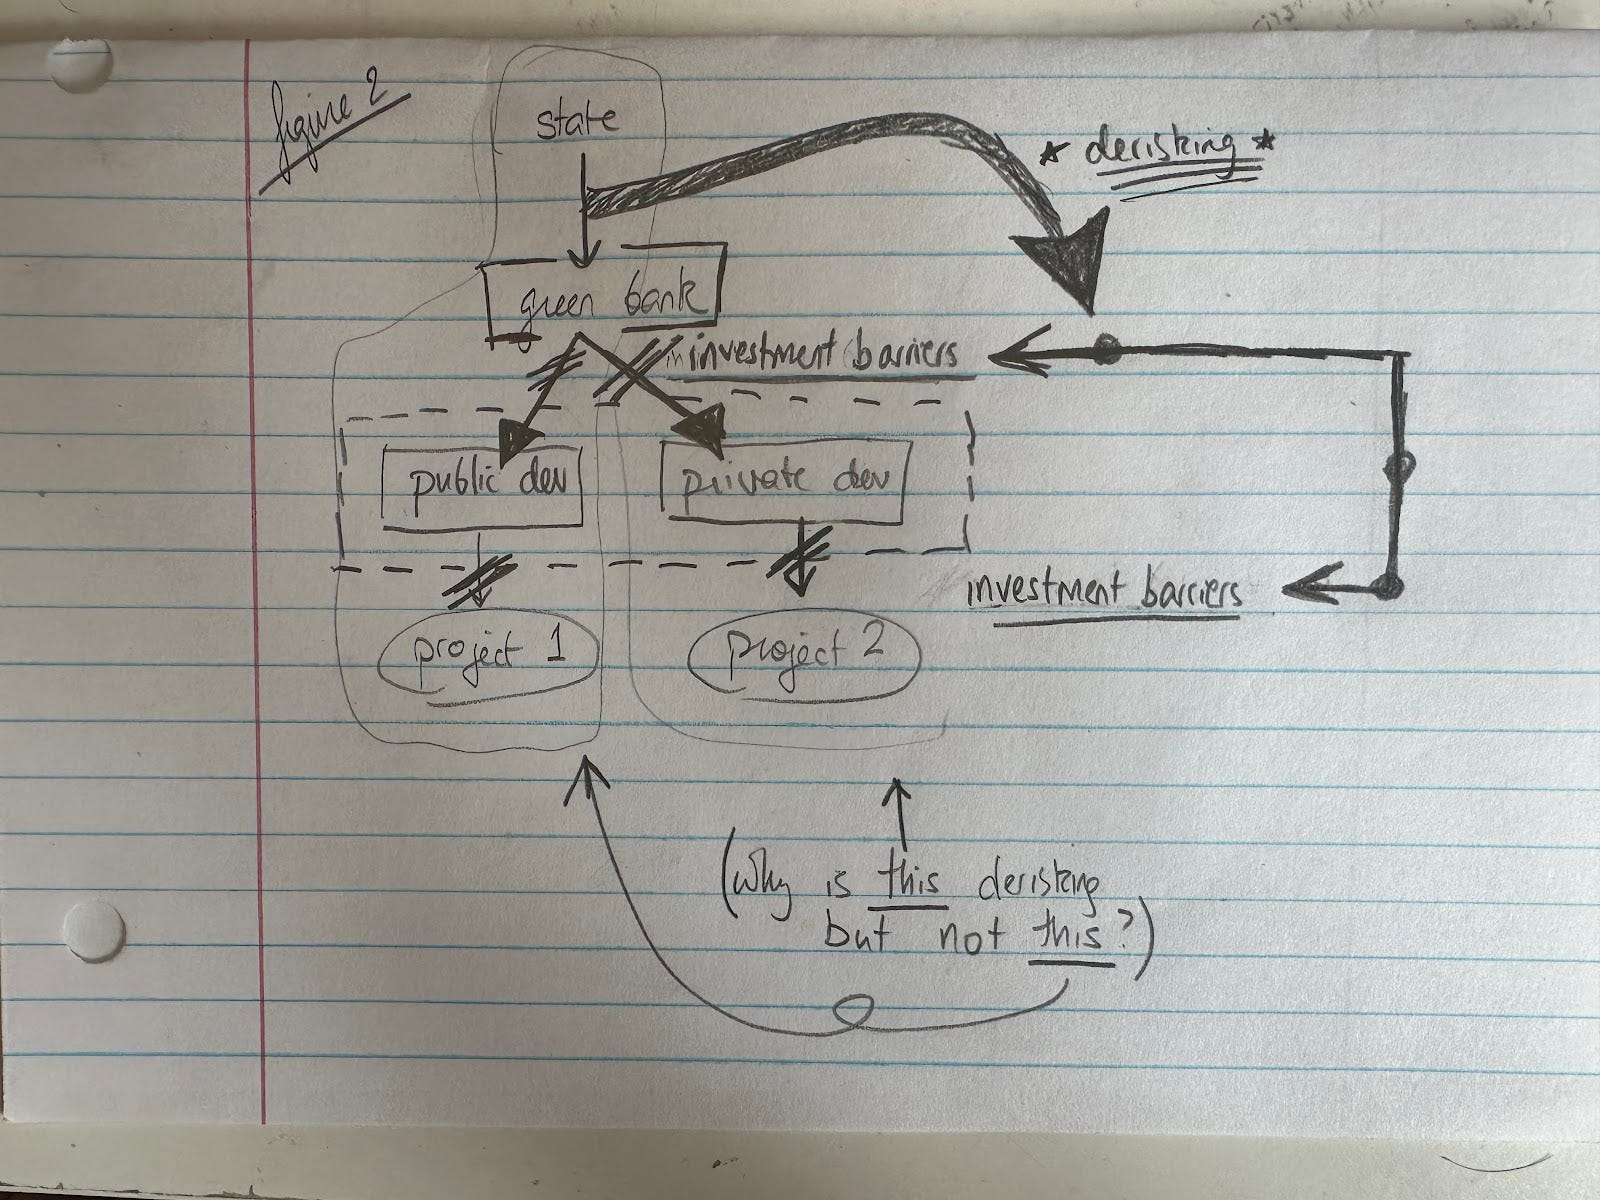 figure 2
state
* derisking *
green bank
investment barriers
public dev
private dev
investment barriers
project 1
project 2
(why is this derisking
but not this?)